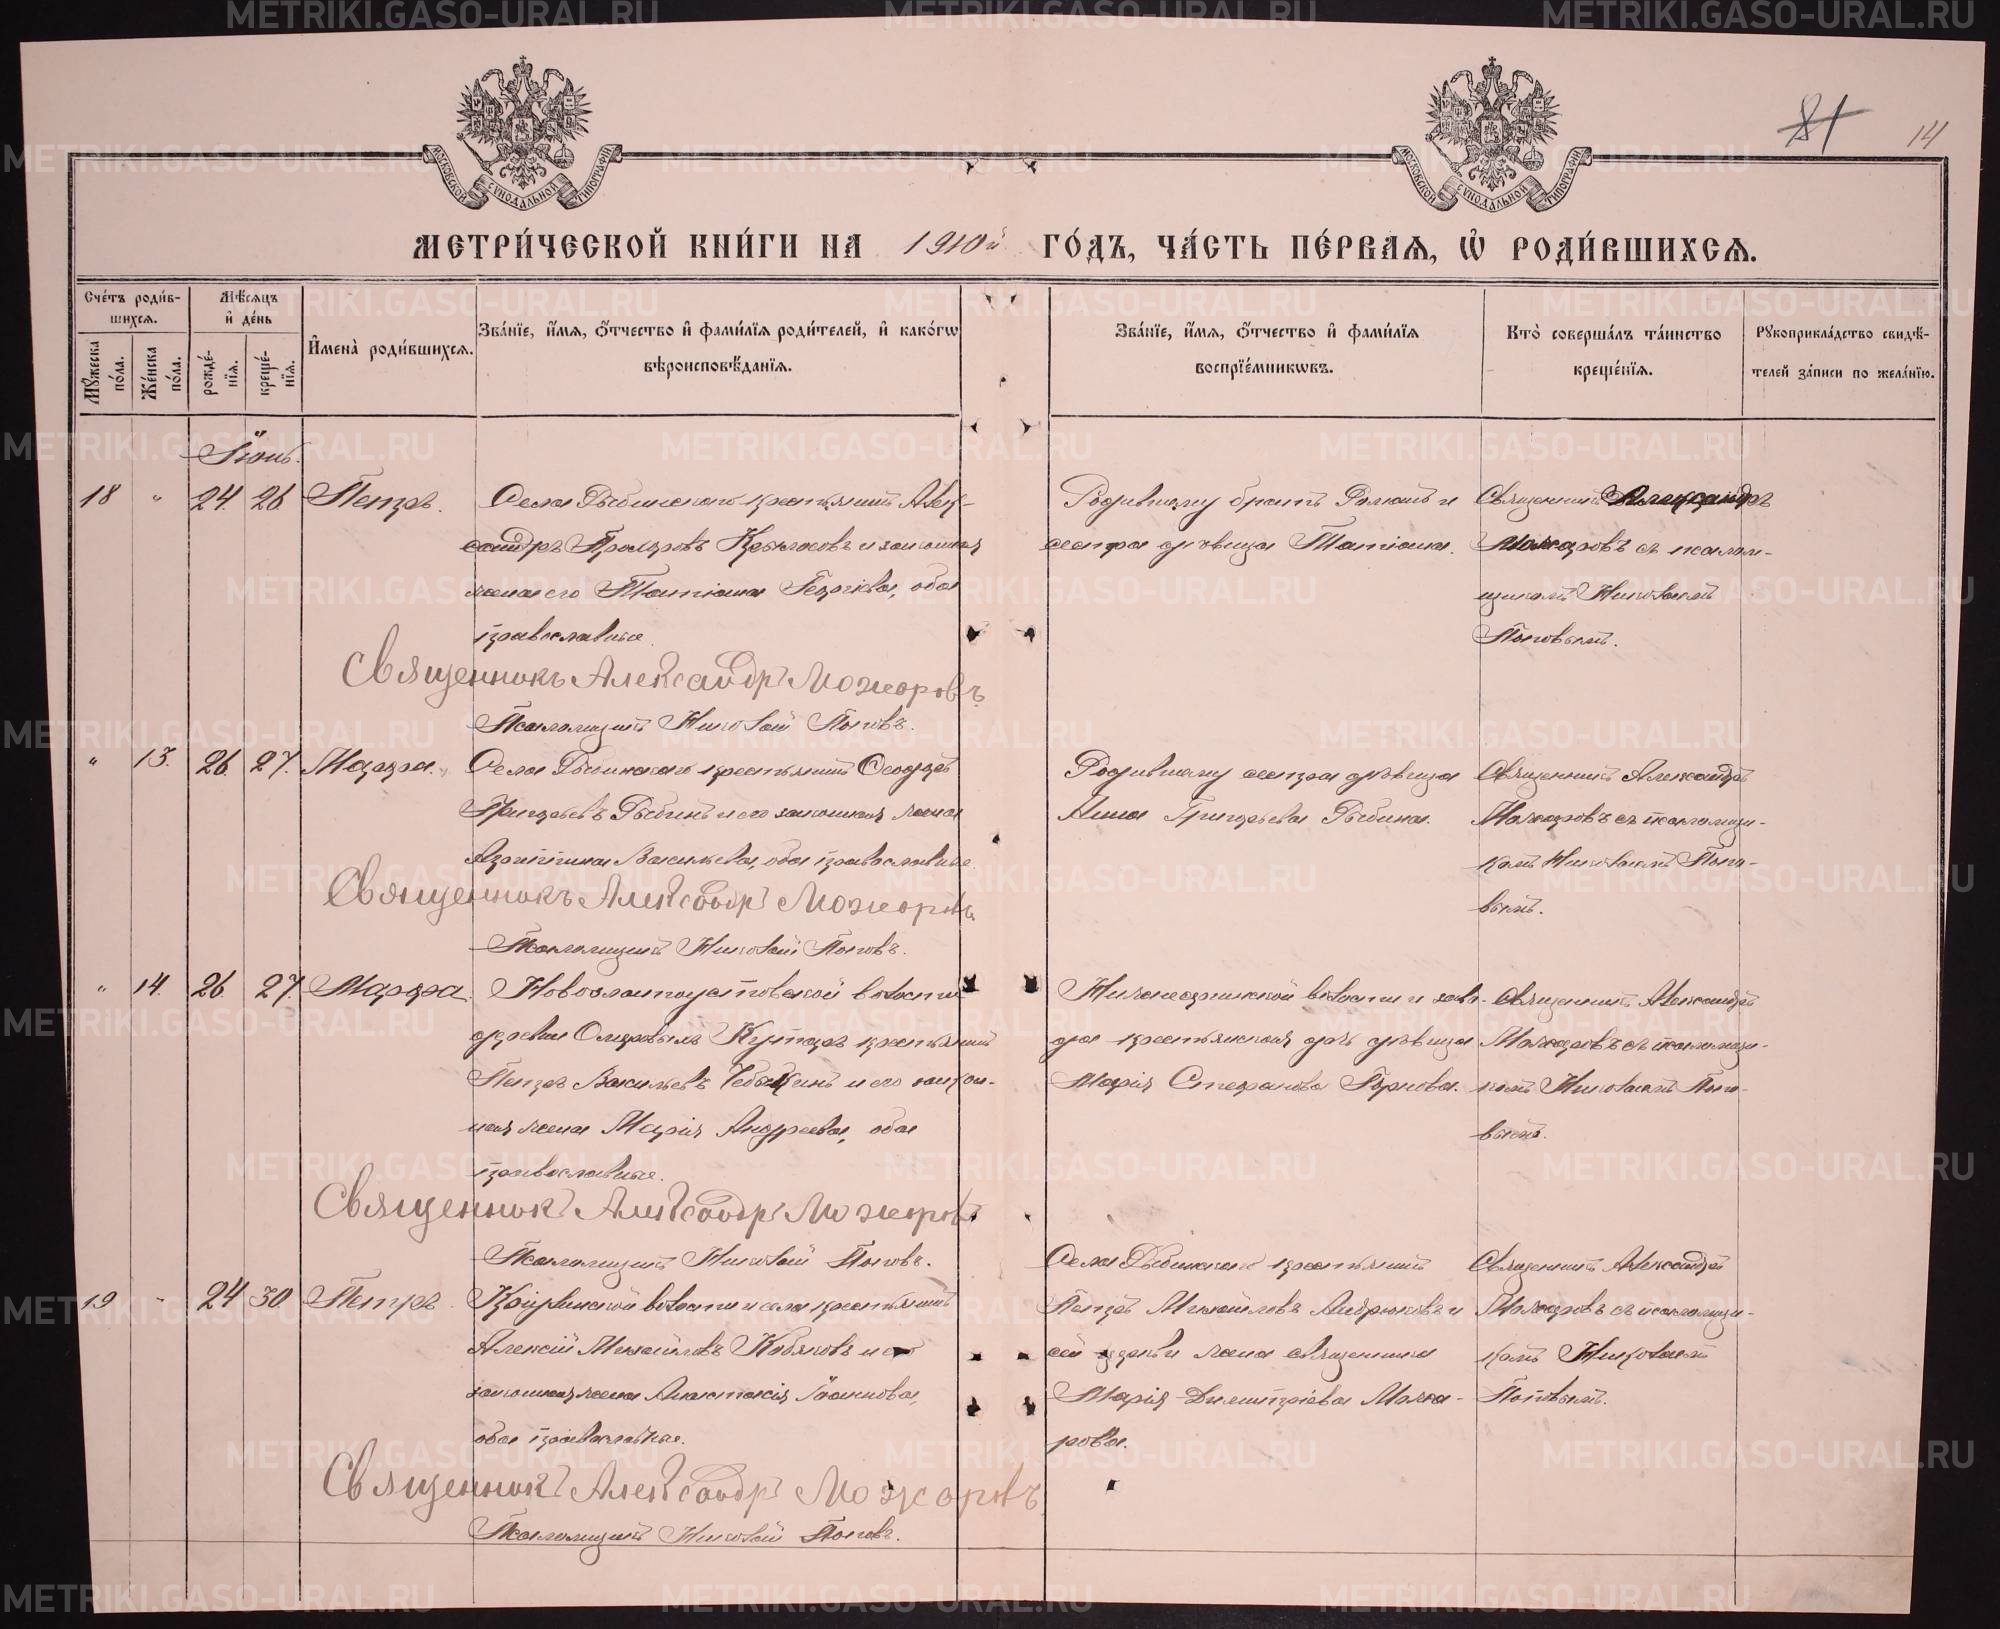 81 14
МОСКОВСКОЙ СѴНОДАЛЬНОЙ ТИПОГРАФІИ
МОСКОВСКОЙ СѴНОДАЛЬНОЙ ТИПОГРАФІИ
МЕТРИ́ЧЕСКОЙ КНИ́ГИ НА 1910й ГО́ДЪ, ЧА́СТЬ ПЕ́РВАЯ, Ѡ҆ РОДИ́ВШИХСЯ.
Сче́тъ роди́в-
шихся.
Мѣ́сяцъ
и҆ де́нь
Мꙋ́жеска
по́ла.
Же́нска
по́ла.
рожде́-
нїя.
креще́-
нїя.
И҆мена̀ роди́вшихся.
Зва́нїе, и҆́мя, ѻ҆́тчество и҆ фами́лїя роди́телей, и҆ како́гѡ
вѣроисповѣ́данїя.
Зва́нїе, и҆́мя, ѻ҆́тчество и҆ фами́лїя
воспрїе́мникѡвъ.
Кто̀ соверша́лъ та́инство
креще́нїя.
Рꙋкоприкла́дство свидѣ́-
телей за́писи по жела́нїю.
Іюнь.
18 " 24. 26. Петръ.
Села Рыбинскаго крестьянинъ Алек-
сандръ и законная
жена его Татіана Георгіева, оба
православные.
Священникъ Александръ Можаровъ
Псаломщикъ Николай Поповъ.
Родившему братъ Романъ и
сестра дѣвица Татіана.
Священникъ Александръ
Можаровъ съ псалом-
щикомъ Николаемъ
Поповымъ.
" 13. 26. 27. Марфа.
Села Рыбинскаго крестьянинъ Ѳеодоръ
Григорьевъ Рыбинъ и его законная жена
Агриппина Васильева, оба православные.
Священникъ Александръ Можаровъ
Псаломщикъ Николай Поповъ.
Родившему сестра дѣвица
Анна Григорьева Рыбина.
Священникъ Александръ
Можаровъ съ псаломщи-
комъ Николаемъ Попо-
вымъ.
" 14. 26. 27. Марфа
Новозлатоустовской волости
деревни крестьянинъ
Петръ Васильевъ и его закон-
ная жена Марія Андреева, оба
православные.
Священникъ Александръ Можаровъ
Псаломщикъ Николай Поповъ.
Нижнесергинской волости и заво-
да крестьянская дочь дѣвица
Марія Стефанова
Священникъ Александръ
Можаровъ съ псаломщи-
комъ Николаемъ Попо-
вымъ.
19 " 24 30 Петръ.
волости и села крестьянинъ
Алексій Михайловъ Кобяковъ и его
законная жена Анастасія Іоаннова,
оба православные.
Священникъ Александръ Можаровъ
Псаломщикъ Николай Поповъ.
Села Рыбинскаго крестьянинъ
Петръ Михайловъ и
сей церкви жена священника
Марія Димитріева Можа-
рова.
Священникъ Александръ
Можаровъ съ псаломщи-
комъ Николаемъ
Поповымъ.
METRIKI.GASO-URAL.RU